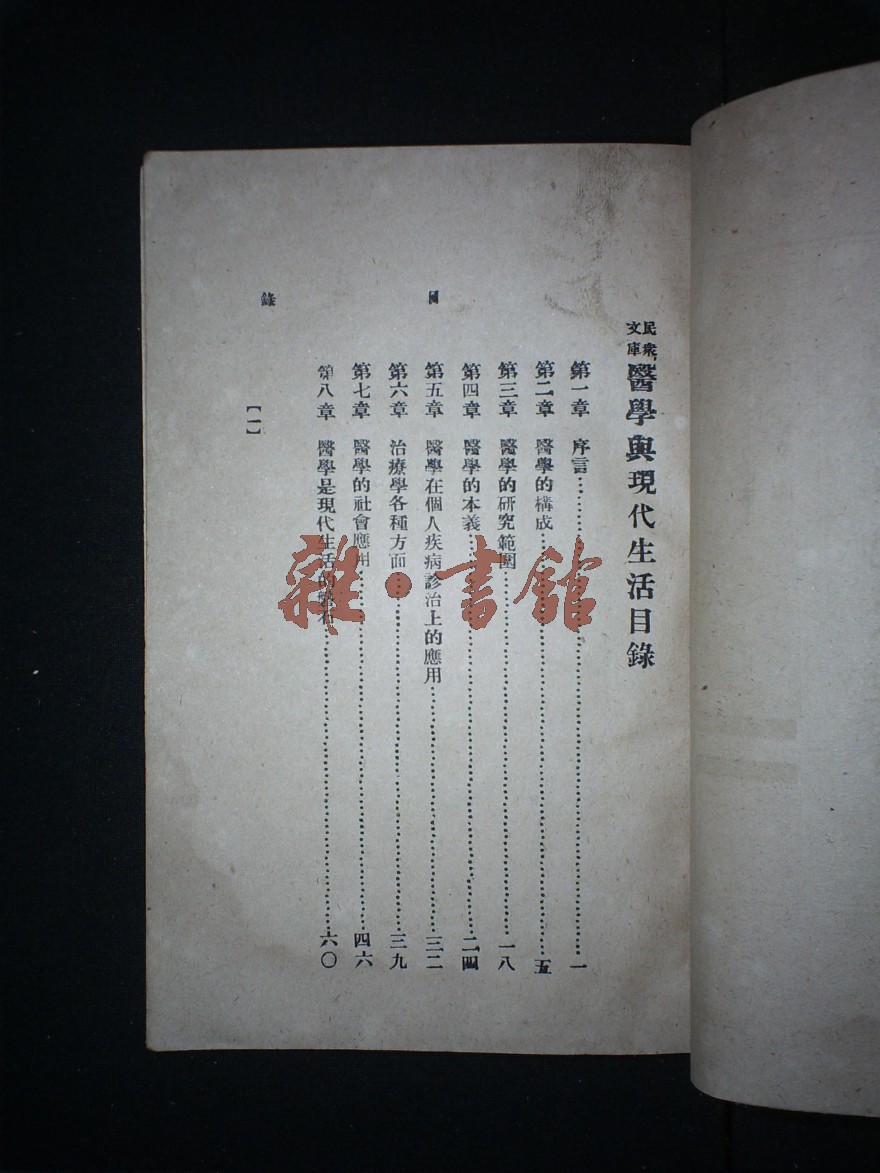 民衆文庫 醫學與現代生活目錄
第一章 序言……一
第二章 醫學的構成……五
第三章 醫學的研究範圍……一八
第四章 醫學的本義……二四
第五章 醫學在個人疾病診治上的應用……三二
第六章 治療學各種方面……三九
第七章 醫學的社會應用……四六
第八章 醫學是現代生活的……六〇
目錄
【一】
雜·書館